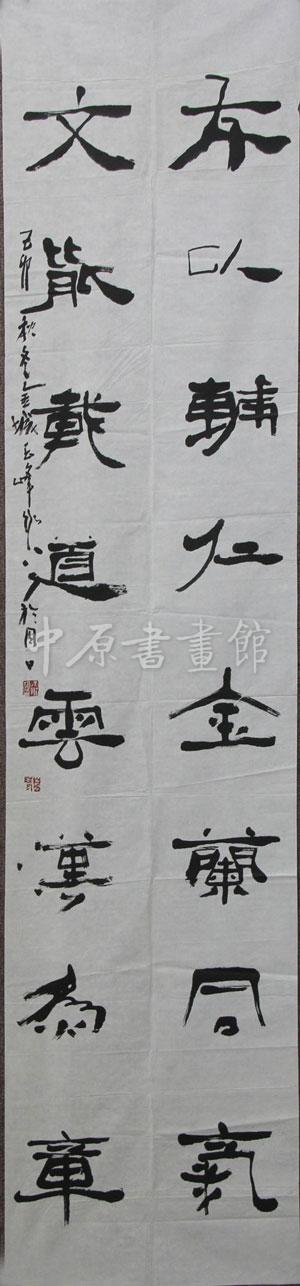 友以輔仁金蘭同氣
文能載道雲漢為章
中原書畫館